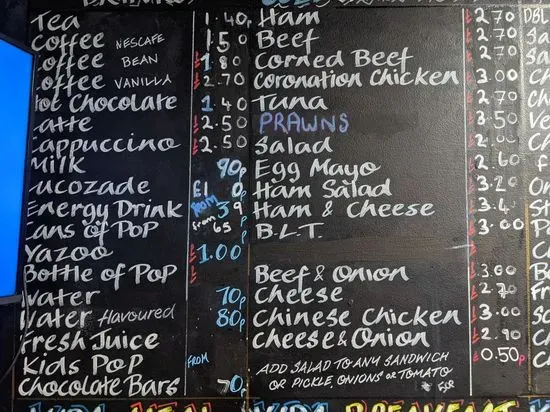 Tea 1.40p
Coffee NESCAFE 1.50
Coffee BEAN £1.80
Coffee VANILLA £2.70
Hot Chocolate 1.40
Latte £2.50
Cappuccino £2.50
Milk 90p
Lucozade £1 0p
Energy Drink FROM 39
Cans of Pop from 65p
Yazoo £1.00
Bottle of Pop £
Water 70p
Water flavoured 80p
Fresh Juice
Kids Pop FROM
Chocolate Bars 70p
Ham £2.70
Beef £2.70
Corned Beef £2.70
Coronation Chicken £3.00
Tuna £2.70
PRAWNS £3.50
Salad £2.00
Egg Mayo £2.60
Ham Salad £3.20
Ham & Cheese £3.40
B.L.T. £3.00
Beef & Onion £3.00
Cheese £2.70
Chinese Chicken £3.00
Cheese & Onion £2.90
ADD SALAD TO ANY SANDWICH £0.50p
OR PICKLE, ONIONS OR TOMATO
DBL